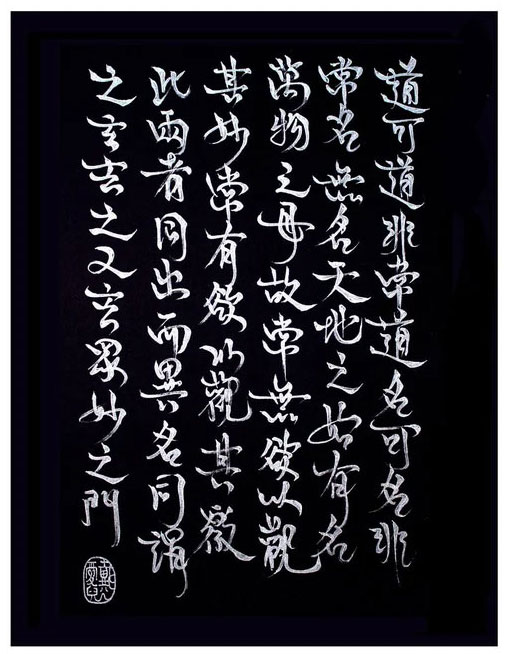 道可道非常道名可名非
常名無名天地之始有名
萬物之母故常無欲以觀
其妙常有欲以觀其徼
此兩者同出而異名同謂
之玄玄之又玄眾妙之門